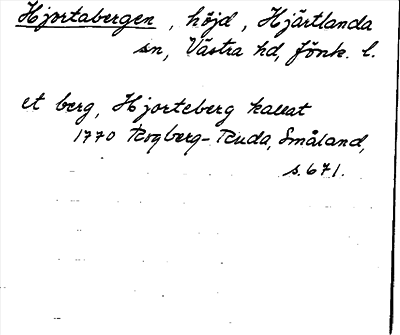 Hjortabergen, höjd, Hjärtlanda
sn, Västra hd, Jönk. l.
et berg, Hjorteberg kallat
1770 Rogberg-Ruda, Småland,
s. 671.